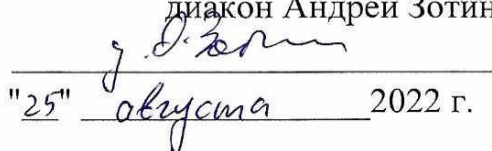 диакон Андрей Зотин
д. А. Зотин
"25" августа 2022 г.